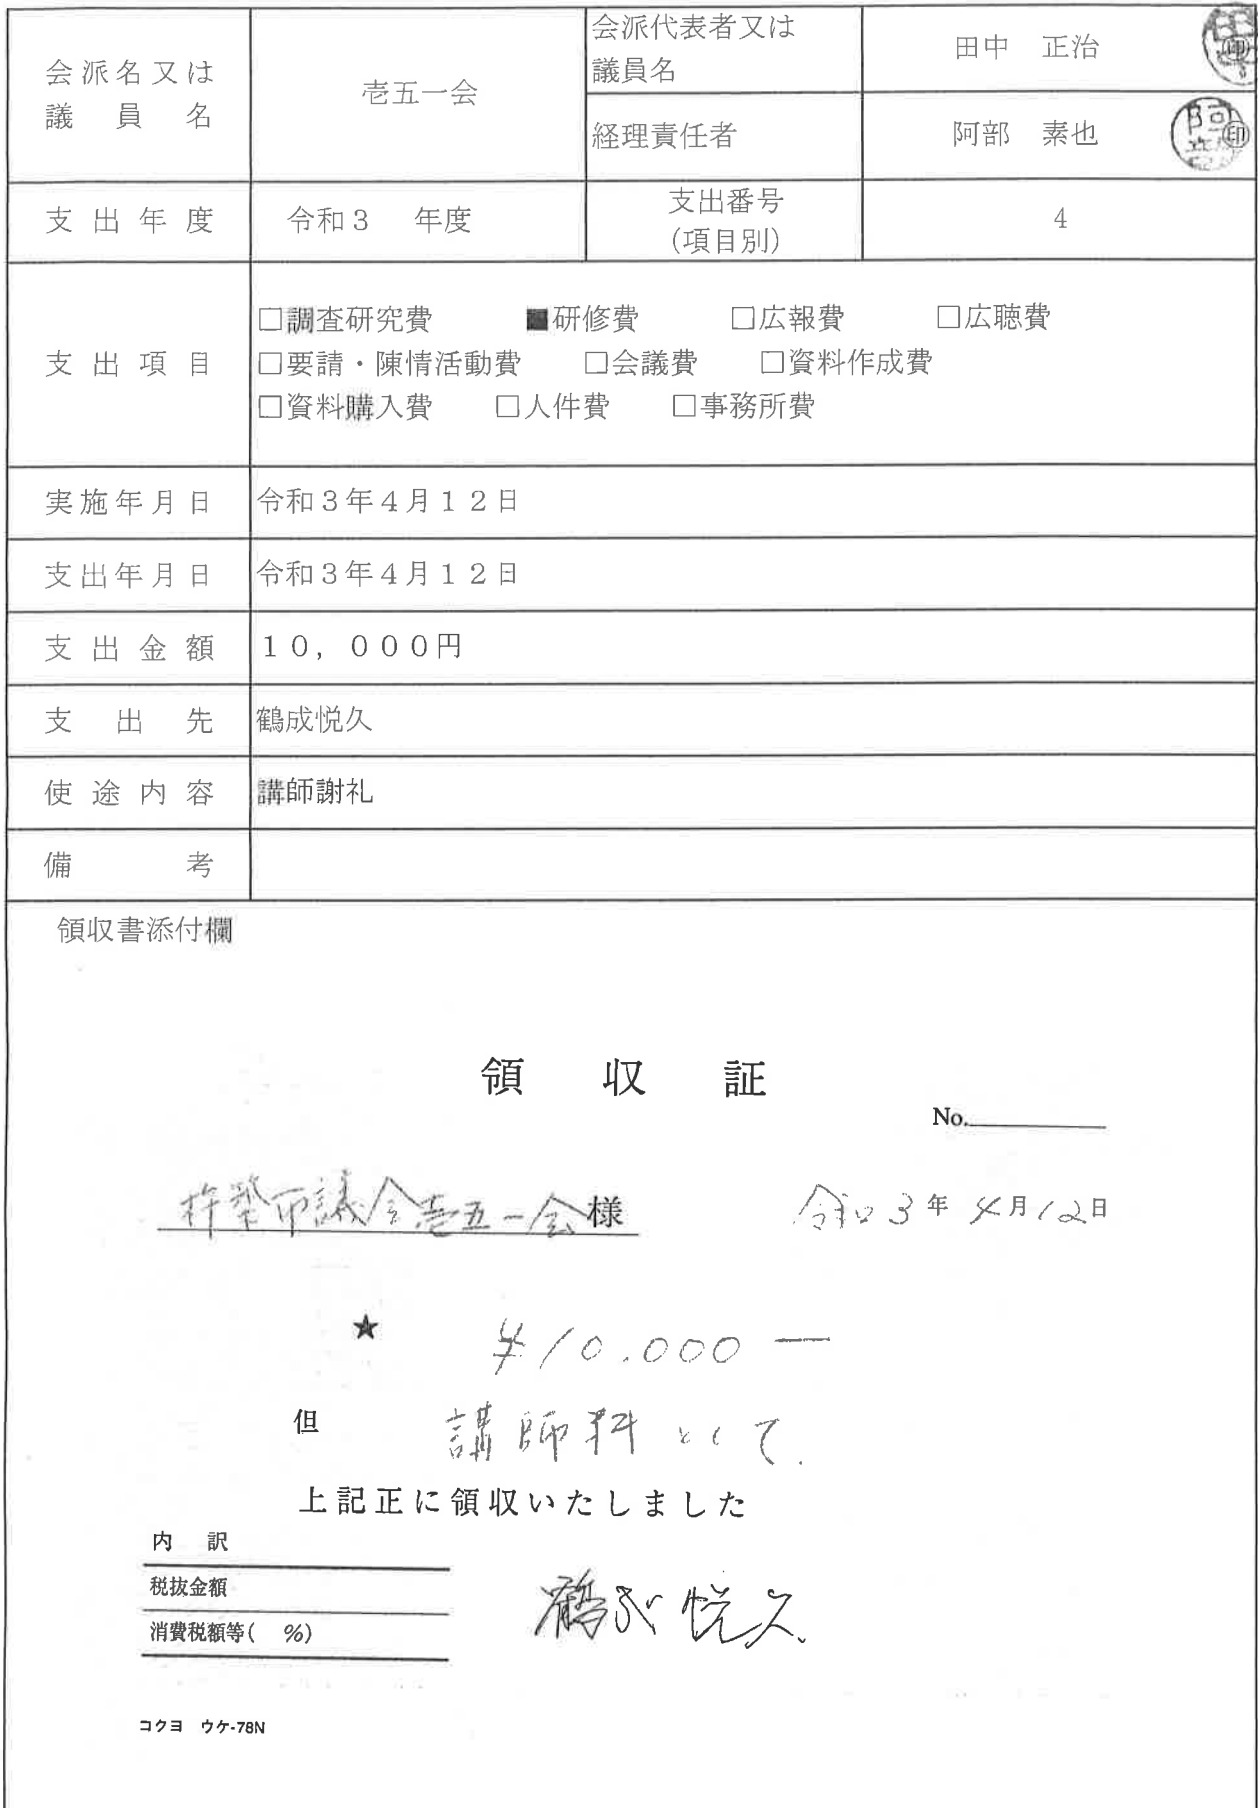 会派名又は
議員名
壱五一会
会派代表者又は
議員名
田中 正治
印
経理責任者
阿部 素也
印
支出年度
令和3 年度
支出番号
(項目別)
4
支出項目
□調査研究費 ■研修費 □広報費 □広聴費
□要請・陳情活動費 □会議費 □資料作成費
□資料購入費 □人件費 □事務所費
実施年月日
令和3年4月12日
支出年月日
令和3年4月12日
支出金額
10,000円
支出先
鶴成悦久
使途内容
講師謝礼
備考
領収書添付欄
領収証
No.
杵築市議会壱五一会様
令和3年4月12日
★ ¥10.000―
但 講師料として.
上記正に領収いたしました
内訳
税抜金額
消費税額等( %)
鶴成悦久
コクヨ ウケ-78N